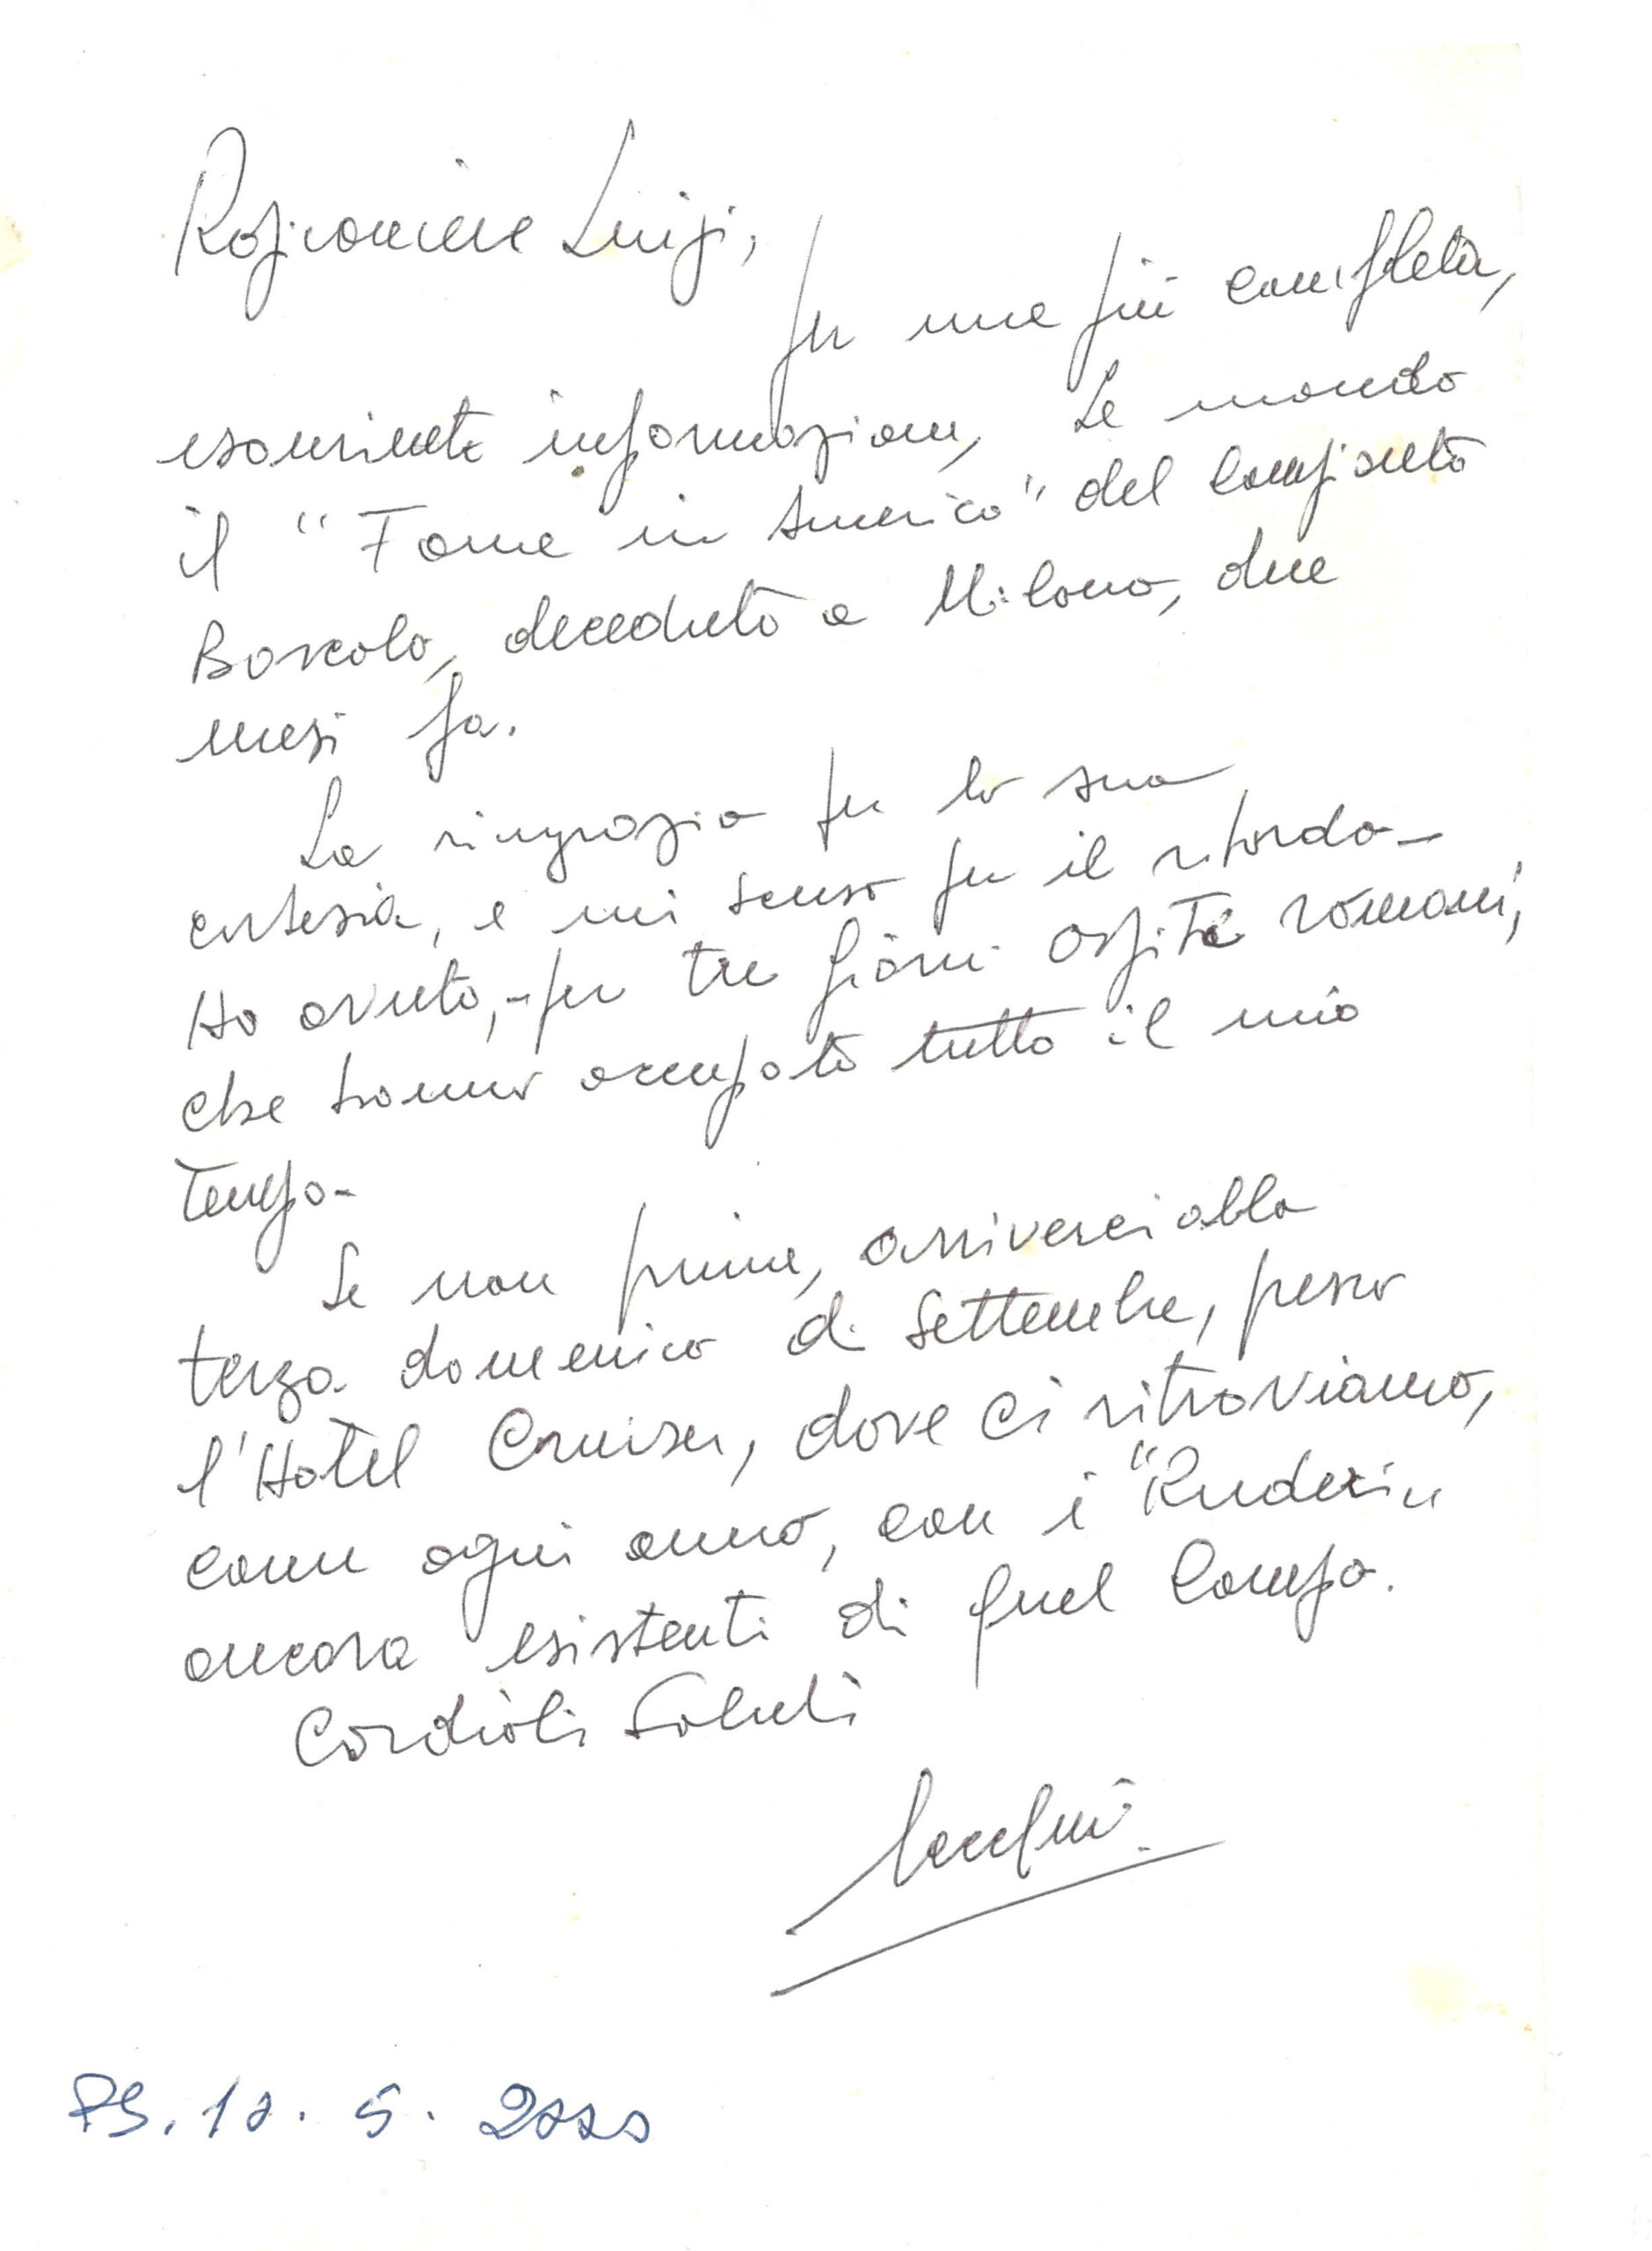 Ragioniere Luigi,
per una più completa,
esauriente informazione, Le mando
il "Fame in America" del compianto
Boscolo, deceduto a Milano, due
mesi fa.
La ringrazio per la sua
cortesia, e mi scuso per il ritardo -
Ho avuto, - per tre giorni ospiti romani,
che hanno occupato tutto il mio
tempo -
Se non prima, arriverci alla
terza domenica di Settembre, presso
l'Hotel Cruiser, dove ci ritroviamo,
come ogni anno, con i "Ruderi"
ancora esistenti di quel Campo.
Cordiali Saluti
PS. 10. 5. 2000